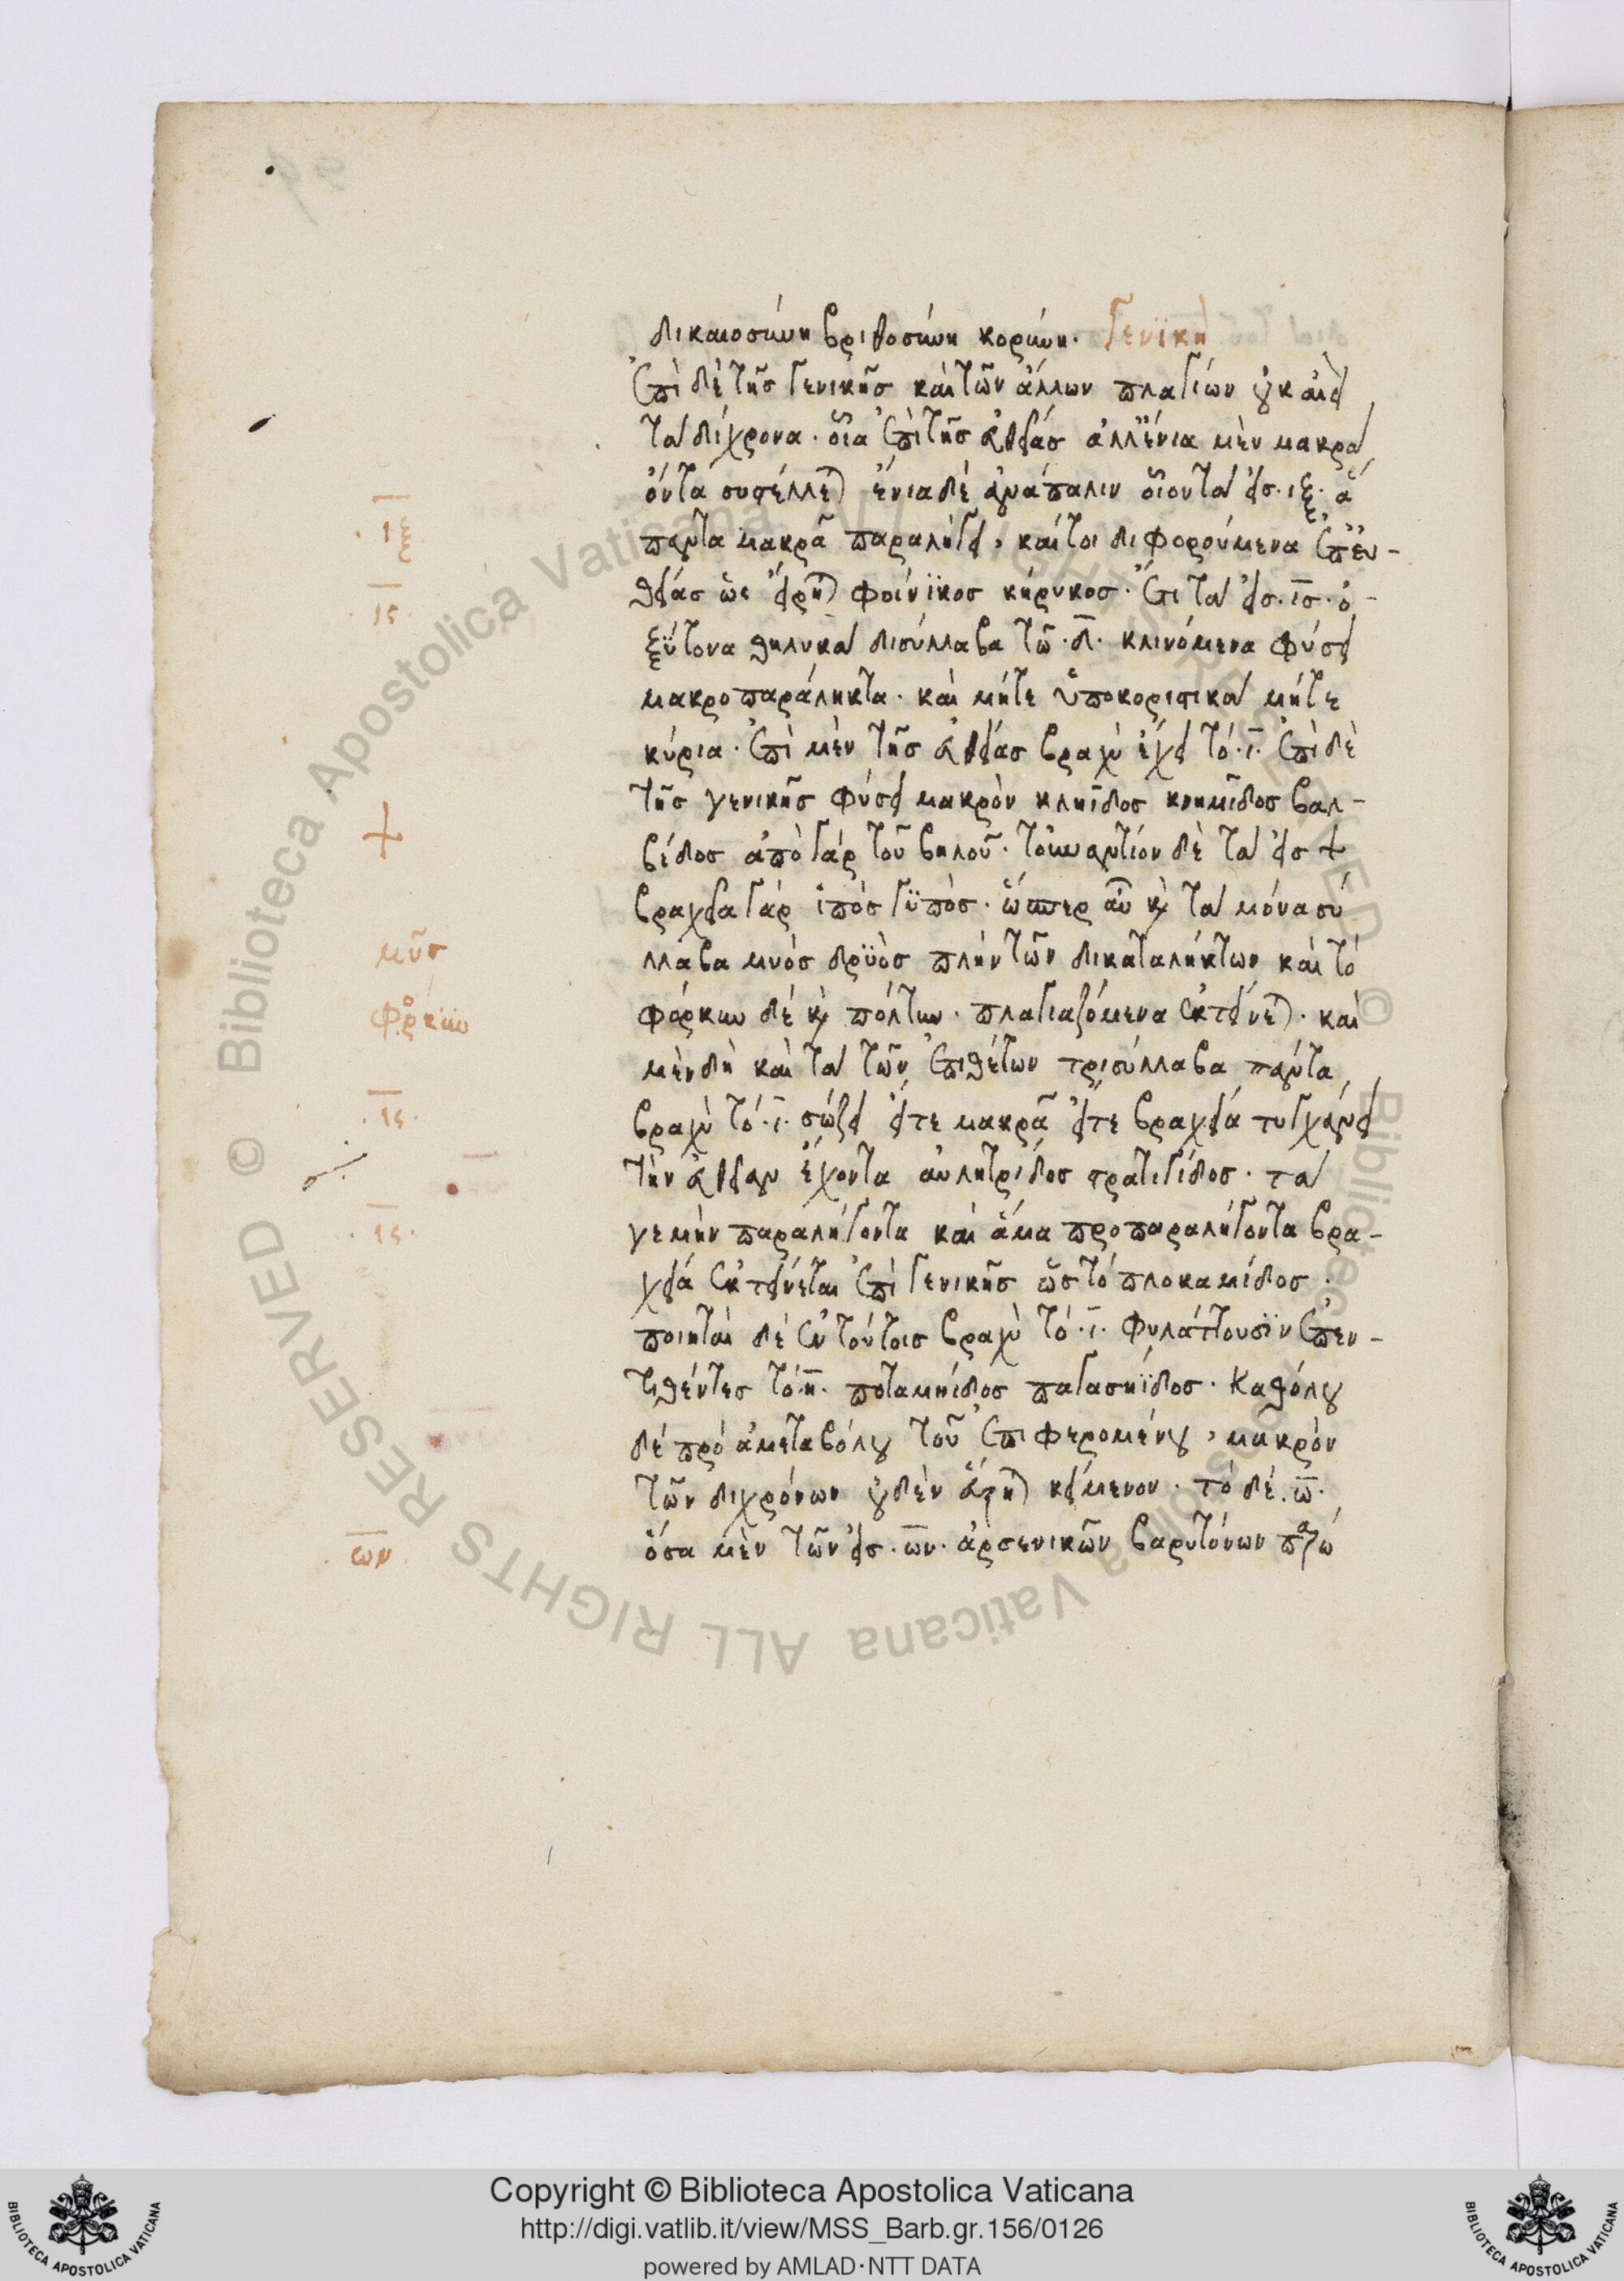 δικαιοσύνη βριθοσύνη κορύνη. Γενϊκὴ
Ἐπὶ δὲ τῆς γενικῆς καὶ τῶν ἄλλων πλαγίων οὐκ ἀεὶ
τὰ δίχρονα. οἷα ἐπὶ τῆς εὐθείας ἀλλ' ἔνια μὲν μακρὰ
ὄντα συστέλλεται ἔνια δὲ ἀνάπαλιν οἷον τὰ εἰς. ιξ. ἃ
.ιξ.
πάντα μακρᾷ παραλήγει, καίτοι διφορούμενα ἐπ' εὐ-
θείας ὡς εἴρηται φοίνϊκος κήρυκος. Ἔτι τὰ εἰς. ις. ὀ-
.ις.
ξΰτονα θηλυκὰ δισύλλαβα τῶ. δ. κλινόμενα φύσει
μακροπαράληκτα. καὶ μήτε ὑποκοριστικὰ μήτε
κύρια. Ἐπὶ μὲν τῆς εὐθείας βραχὺ ἔχει τό. ι. Ἐπὶ δὲ
τῆς γενικῆς φύσει μακρὸν κληῖδος κνημῖδος βαλ-
βίδος ἀπὸ γάρ τοῦ βηλοῦ. τοὐναντίον δὲ τὰ εἰς ψ
ψ
βραχεῖα γάρ ἰπὸς γϋπὸς. ὥσπερ αὖ καὶ τὰ μόνασύ
λλαβα μυὸς δρϋὸς πλὴν τῶν δικαταλήκτων καὶ τό
μῦς
φόρκυν δέ καὶ πόλτυν. πλαγιαζόμενα ἐκτείνεται. καὶ
φόρκυν
μὲν δὴ καὶ τὰ τῶν ἐπιθέτων τρισύλλαβα πάντα
βραχὺ τό. ι. σώζει εἴτε μακρᾷ εἴτε βραχεῖα τυγχάνει
.ις.
τὴν εὐθεῖαν ἔχοντα αὐλητρίδος στρατιγίδος. τὰ
γε μὴν παραλήγοντα καὶ ἅμα προπαραλήγοντα βρα-
.ις.
χεῖα ἐκτείνεται ἐπὶ γενικῆς ὥς τό πλοκαμίδος.
ποιηταὶ δὲ ἐν τούτοις βραχὺ τό. ι. φυλάττουσϊν ἐπεν-
τιθέντες τό. η. ποταμηίδος παγασηΐδος. Καθόλου
δέ πρὸ ἀμεταβόλου τοῦ ἐπιφερομένου, μακρὸν
τῶν διχρόνων οὐδὲν εὕρηται κείμενον. τὸ δέ. ω.
ὅσα μὲν τῶν εἰς. ων. ἀρσενικῶν βαρυτόνων
.ων.
Copyright © Biblioteca Apostolica Vaticana
http://digi.vatlib.it/view/MSS_Barb.gr.156/0126
powered by AMLAD·NTT DATA
BIBLIOTECA APOSTOLICA VATICANA
BIBLIOTECA APOSTOLICA VATICANA
© Biblioteca Apostolica Vaticana ALL RIGHTS RESERVED